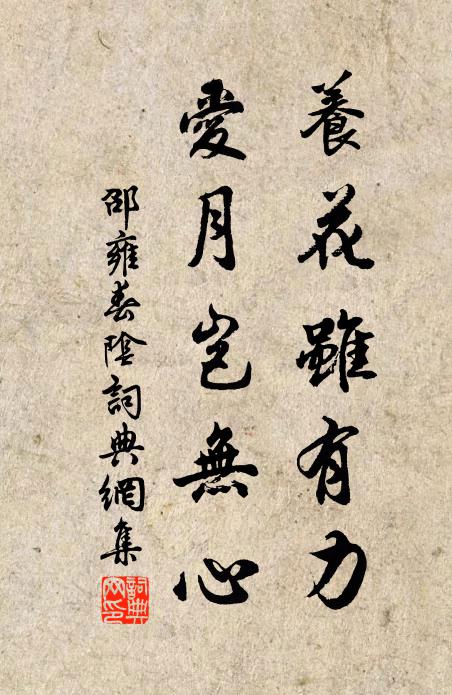 養花雖有力
愛月豈無心
邵雍春陰詞典網集
詞典網印